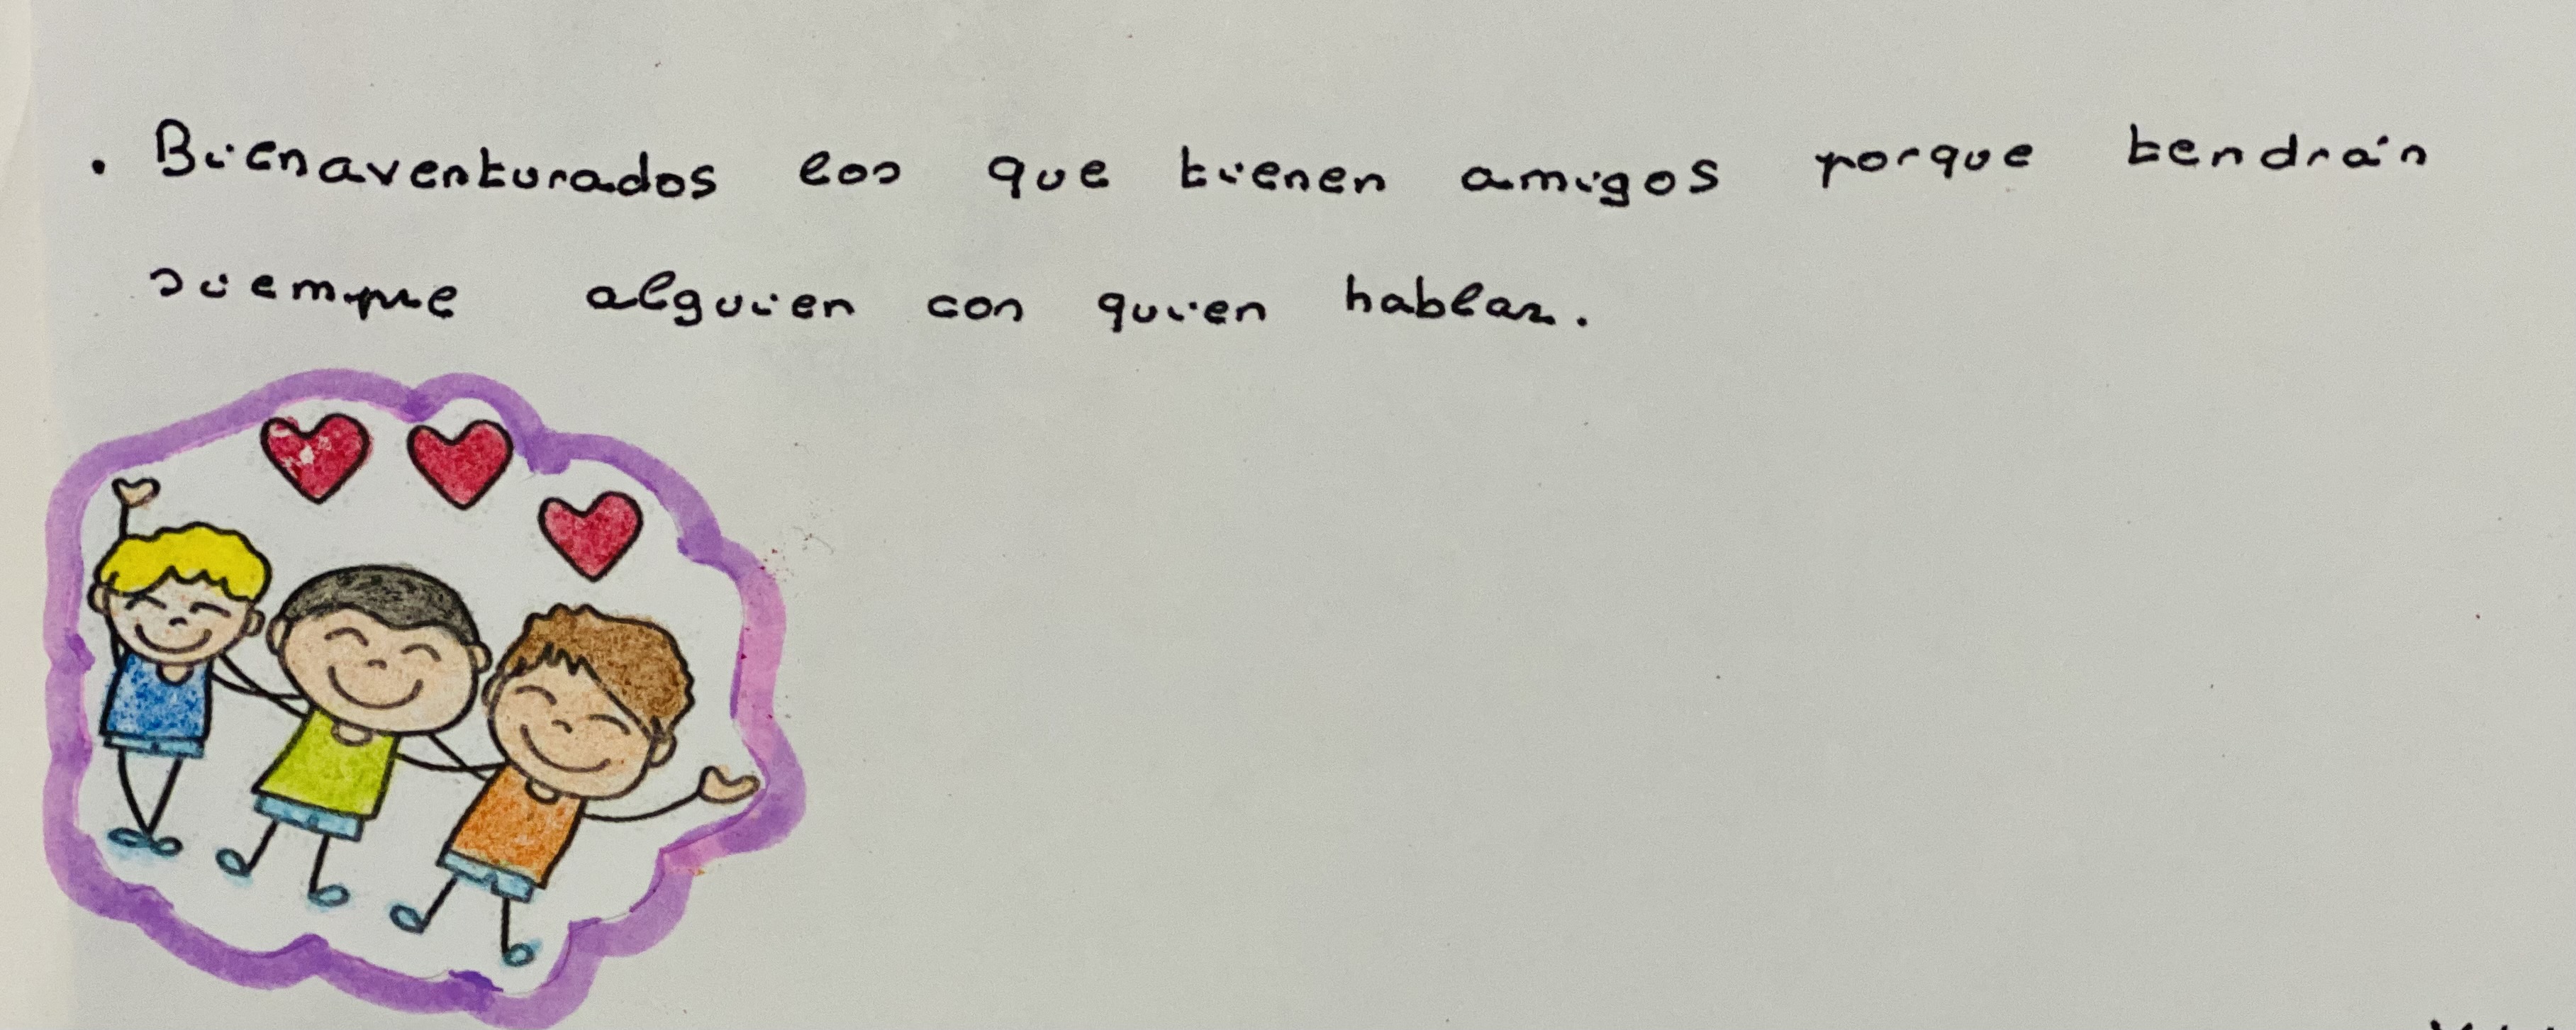 . Bienaventurados los que tienen amigos porque tendrán
siempre alguien con quien hablar.